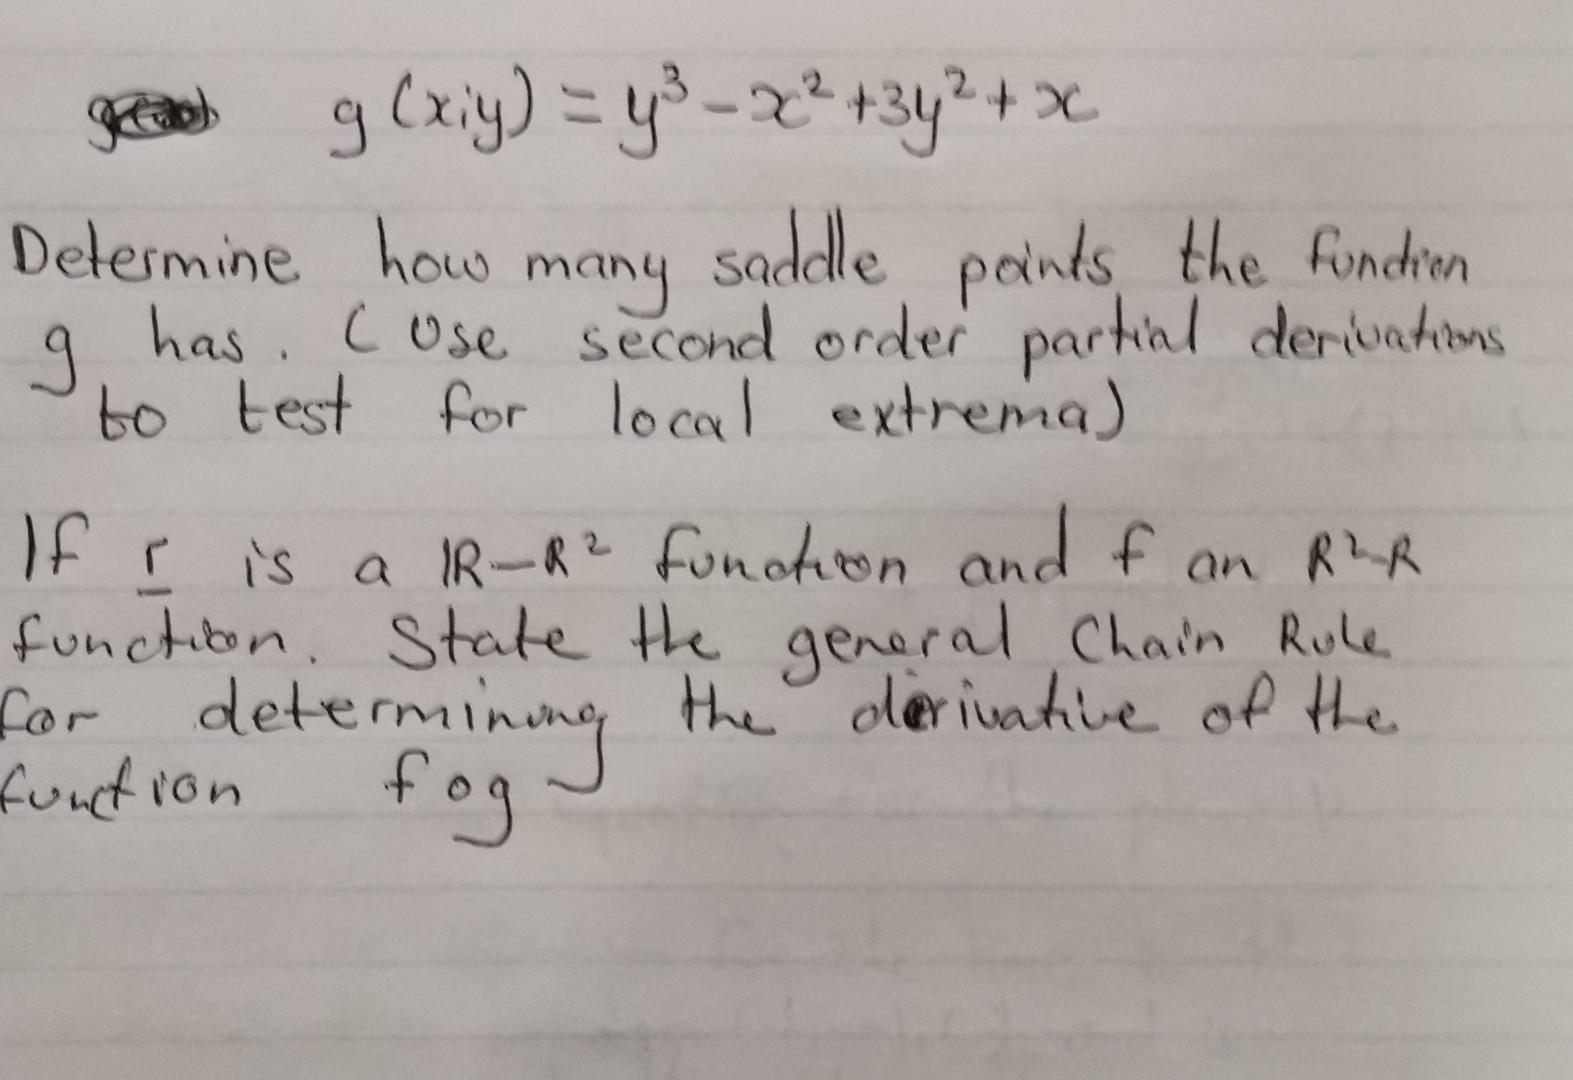 g(x;y) = y³ - x² + 3y² + x
Determine how many saddle points the function
g has. (Use second order partial derivations
to test for local extrema)
If r is a R-R² function and f an R²-R
function. State the general Chain Rule
for determining the derivative of the
function fog